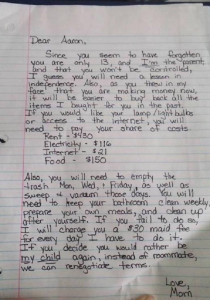 Dear Aaron,
Since you seem to have forgotten
you are only 13, and I'm the parent,
and that you won't be controlled,
I guess you will need a lesson in
independence. Also, as you threw in my
face that you are making money now,
it will be easier to buy back all the
items I bought for you in the past.
If you would like your lamp/lightbulbs
or access to the internet, you will
need to pay your share of costs:
Rent - $430
Electricity - $116
Internet - $21
Food - $150
Also, you will need to empty the
trash Mon, Wed, + Friday, as well as
sweep & vacuum those days. You will
need to keep your bathroom clean weekly,
prepare your own meals, and clean up
after yourself. If you fail to do so,
I will charge you a $30 maid fee
for every day I have to do it.
If you decide you would rather be
my child again, instead of roommate,
we can renegotiate terms.
Love,
Mom